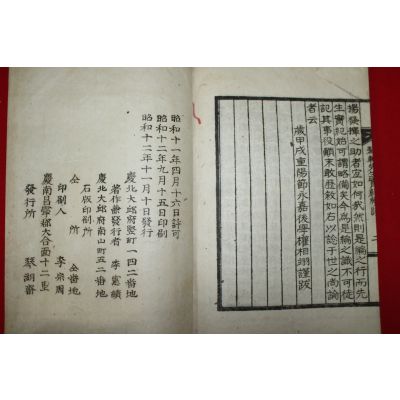 揚發揮之助者宜如何哉然則是編之行而先
生實紀始可謂略備矣今爲是編之識不可徒
記其事役顚末敢歷敍如右以諗于世之尙論
者云
歲甲戌重陽節永嘉後學權相翊謹跋
昭和十一年四月十六日許可
昭和十二年九月十五日印刷
昭和十二年十一月十日發行
慶北大邱府竪町一四二番地
著作兼發行者 李憲績
慶北大邱府南山町五二番地
石版印刷所
仝所 仝番地
印刷人 李宗周
慶南昌寧郡大合面十二里
發行所 琴湖齋